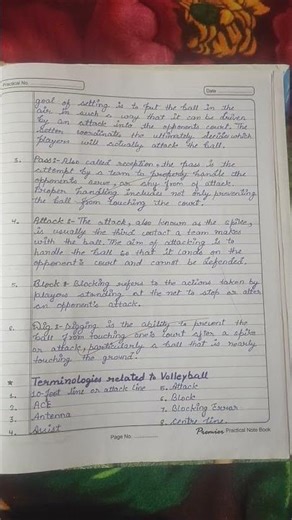 Practical No.
Date
goal of setting is to put the ball in the
air in such a way that it can be driven
by an attack into the opponents court. The
setter coordinates the ultimately decide which
players will actually attack the ball.
3. Pass:- Also called reception, the pass is the
attempt by a team to properly handle the
opponents serve, or any form of attack.
Proper handling includes not only preventing
the ball from touching the court.
4. Attack:- The attack, also known as the spike,
is usually the third contact a team makes
with the ball. The aim of attacking is to
handle the ball so that it lands on the
opponent's court and cannot be defended.
5. Block:- Blocking refers to the actions taken by
players standing at the net to stop or alter
an opponent's attack.
6. Dig:- Digging is the ability to prevent the
ball from touching one's court after a spike
or attack, particularly a ball that is nearly
touching the ground.
* Terminologies related to Volleyball
1. 10-foot line or attack line 5. Attack
2. ACE 6. Block
3. Antenna 7. Blocking Error
4. Assist 8. Centre line
Page No.
Premier Practical Note Book